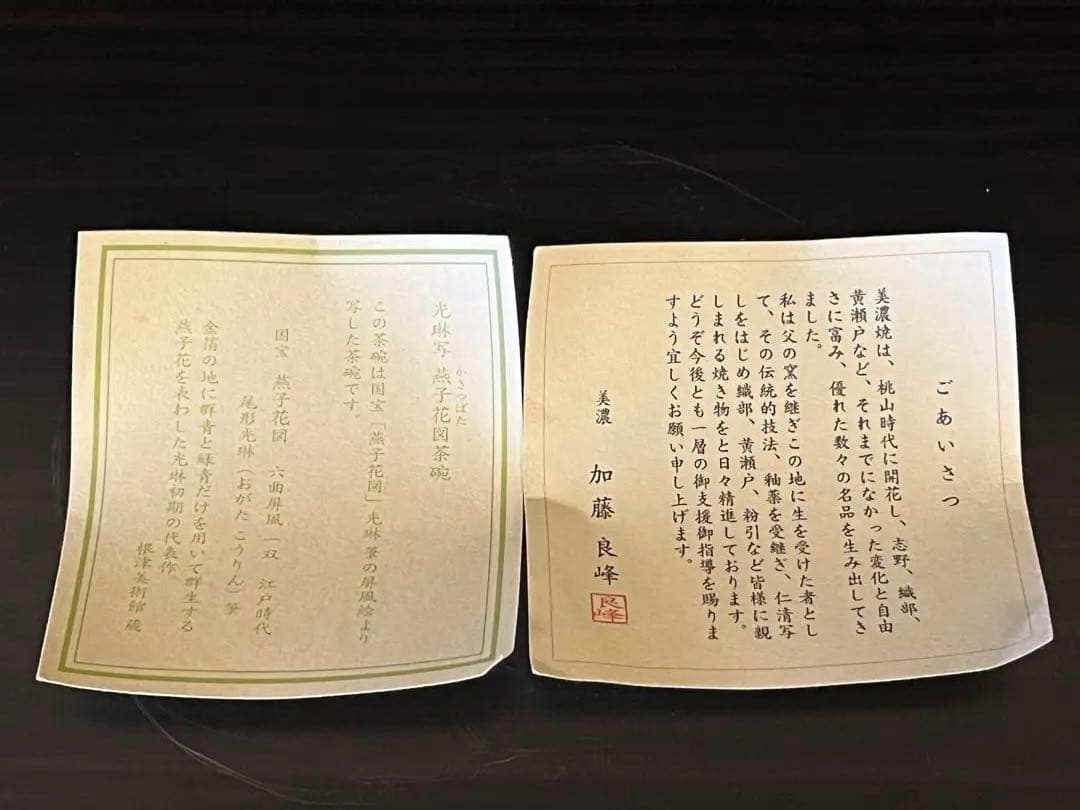 ごあいさつ
美濃焼は、桃山時代に開花し、志野、織部、
黄瀬戸など、それまでになかった変化と自由
さに富み、優れた数々の名品を生み出してき
ました。
私は父の窯を継ぎこの地に生を受けた者とし
て、その伝統的技法、釉薬を受継ぎ、仁清写
しをはじめ織部、黄瀬戸、粉引など皆様に親
しまれる焼き物をと日々精進しております。
どうぞ今後とも一層の御支援御指導を賜りま
すよう宜しくお願い申し上げます。
美濃 加藤良峰
良峰
光琳写 燕子花図茶碗
かきつばた
この茶碗は国宝「燕子花図」光琳筆の屏風絵より
写した茶碗です。
国宝 燕子花図 六曲屏風一双 江戸時代
尾形光琳(おがた こうりん)筆
金箔の地に群青と緑青だけを用いて群生する
燕子花を表わした光琳初期の代表作
根津美術館蔵